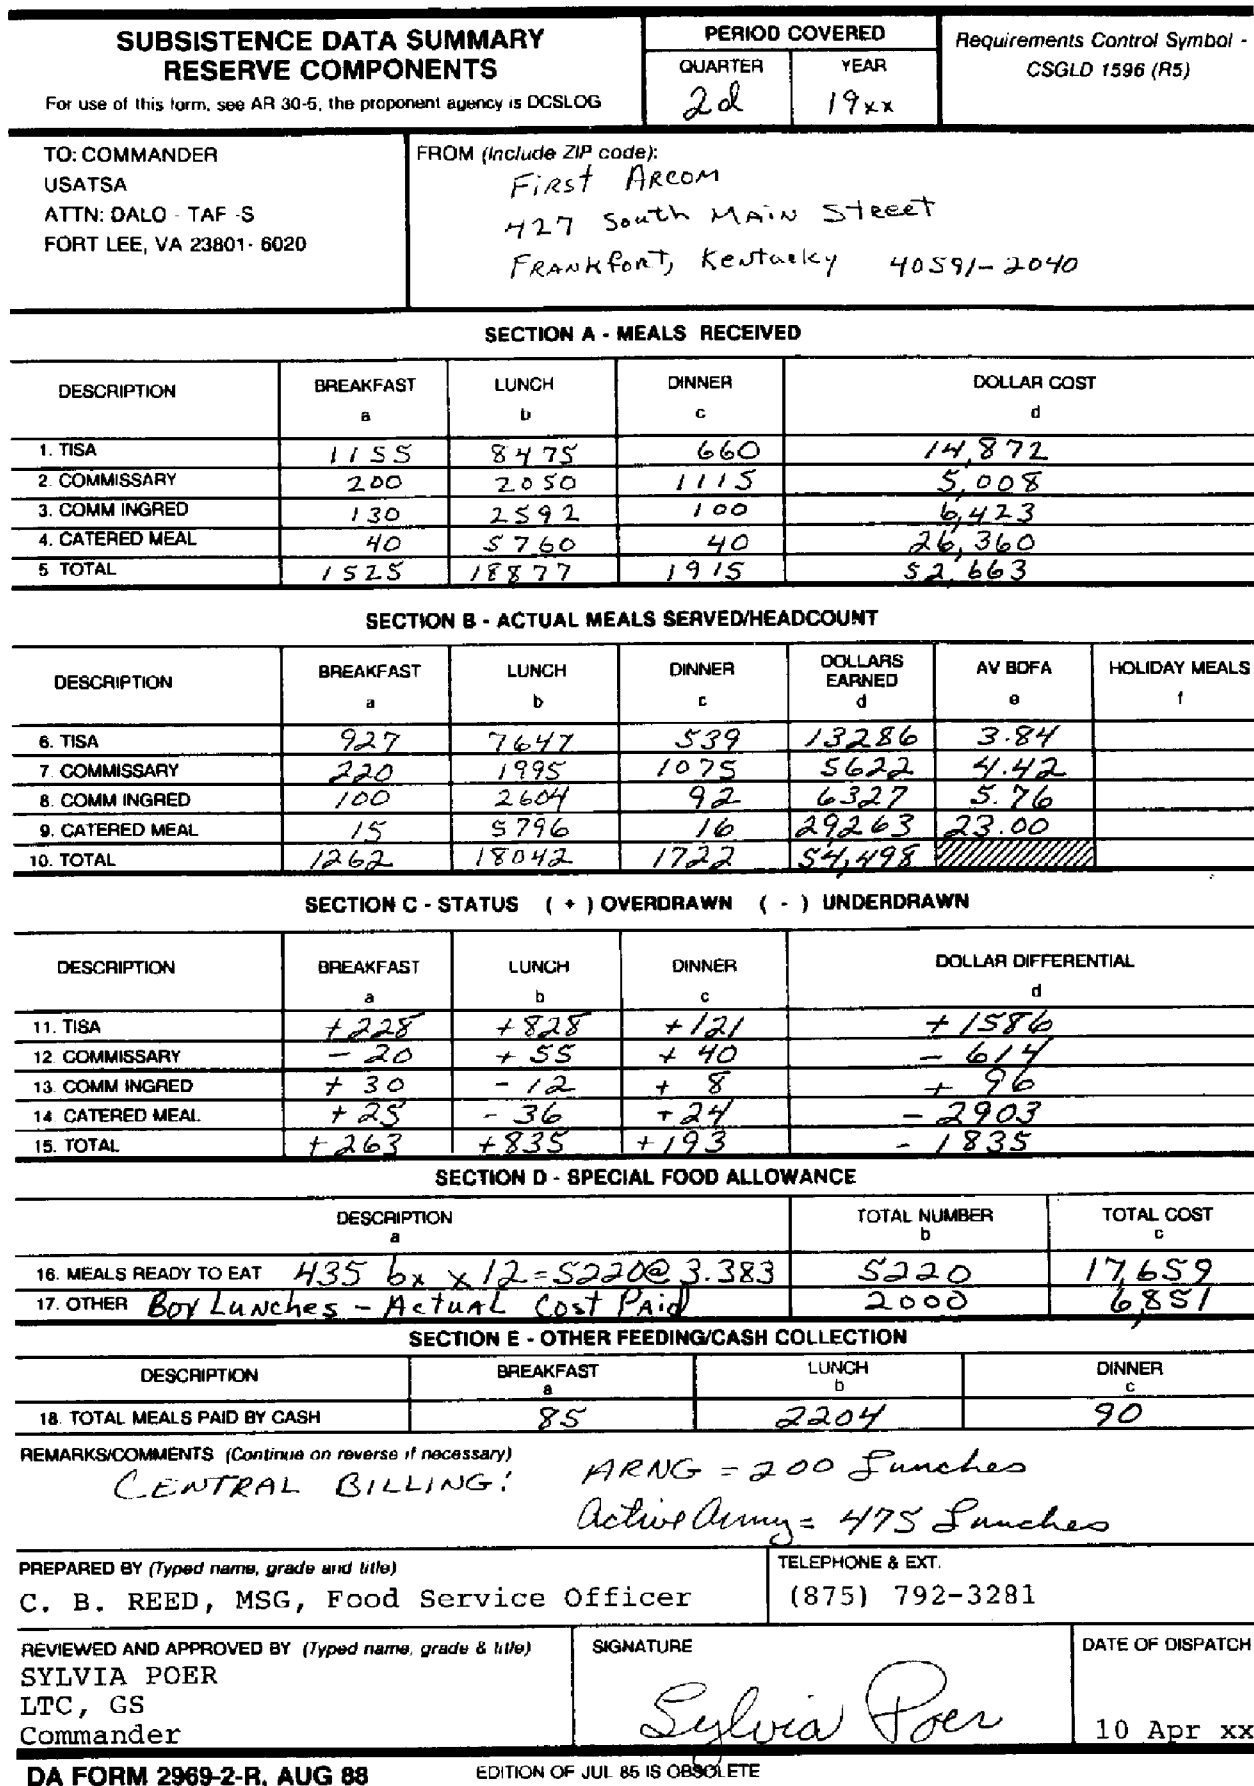 SUBSISTENCE DATA SUMMARY
RESERVE COMPONENTS
For use of this form, see AR 30-5, the proponent agency is DCSLOG
PERIOD COVERED
QUARTER YEAR
2d 19xx
Requirements Control Symbol -
CSGLD 1596 (R5)
TO: COMMANDER
USATSA
ATTN: DALO - TAF -S
FORT LEE, VA 23801- 6020
FROM (Include ZIP code):
First ARCOM
427 South Main Street
Frankfort, Kentucky 40591-2040
SECTION A - MEALS RECEIVED
DESCRIPTION BREAKFAST LUNCH DINNER DOLLAR COST
a b c d
1. TISA 1155 8475 660 14,872
2. COMMISSARY 200 2050 1115 5,008
3. COMM INGRED 130 2592 100 6,423
4. CATERED MEAL 40 5760 40 26,360
5 TOTAL 1525 18877 1915 52,663
SECTION B - ACTUAL MEALS SERVED/HEADCOUNT
DESCRIPTION BREAKFAST LUNCH DINNER DOLLARS EARNED AV BDFA HOLIDAY MEALS
a b c d e f
6. TISA 927 7647 539 13286 3.84
7. COMMISSARY 220 1995 1075 5622 4.42
8. COMM INGRED 100 2604 92 6327 5.76
9. CATERED MEAL 15 5796 16 29263 23.00
10. TOTAL 1262 18042 1722 54,498
SECTION C - STATUS ( + ) OVERDRAWN ( - ) UNDERDRAWN
DESCRIPTION BREAKFAST LUNCH DINNER DOLLAR DIFFERENTIAL
a b c d
11. TISA +228 +828 +121 +1586
12. COMMISSARY - 20 + 55 + 40 - 614
13. COMM INGRED + 30 - 12 + 8 + 96
14. CATERED MEAL + 25 - 36 + 24 - 2903
15. TOTAL +263 +835 +193 - 1835
SECTION D - SPECIAL FOOD ALLOWANCE
DESCRIPTION TOTAL NUMBER TOTAL COST
a b c
16. MEALS READY TO EAT 435 bx x 12 = 5220 @ 3.383 5220 17,659
17. OTHER Box Lunches - Actual Cost Paid 2000 6,851
SECTION E - OTHER FEEDING/CASH COLLECTION
DESCRIPTION BREAKFAST LUNCH DINNER
a b c
18. TOTAL MEALS PAID BY CASH 85 2204 90
REMARKS/COMMENTS (Continue on reverse if necessary)
CENTRAL BILLING: ARNG = 200 Lunches
Active Army = 475 Lunches
PREPARED BY (Typed name, grade and title)
C. B. REED, MSG, Food Service Officer
TELEPHONE & EXT.
(875) 792-3281
REVIEWED AND APPROVED BY (Typed name, grade & title)
SYLVIA POER
LTC, GS
Commander
SIGNATURE
Sylvia Poer
DATE OF DISPATCH
10 Apr xx
DA FORM 2969-2-R, AUG 88 EDITION OF JUL 85 IS OBSOLETE